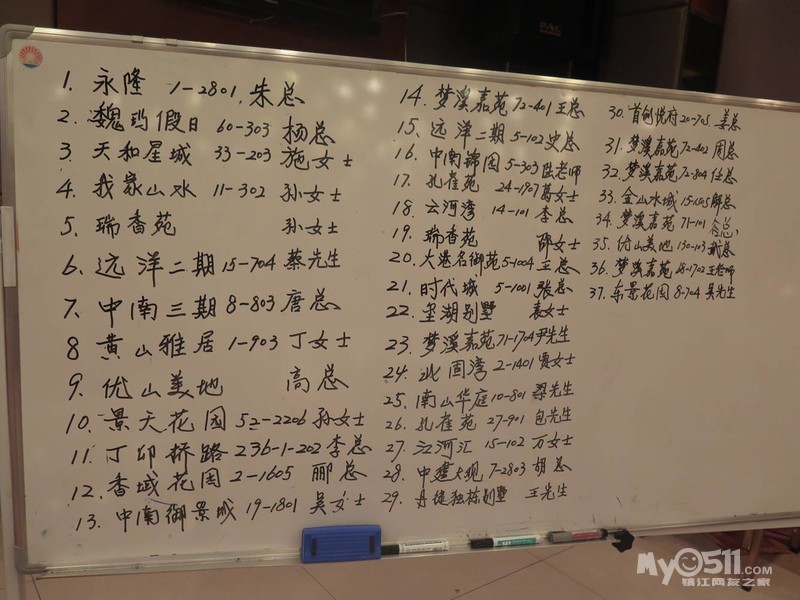 1. 永隆 1-2801. 朱总
2. 魏玛假日 60-303 杨总
3. 天和星城 33-203 施女士
4. 我家山水 11-302 孙女士
5. 瑞香苑 孙女士
6. 远洋二期 15-704 蔡先生
7. 中南三期 8-803 唐总
8 黄山雅居 1-903 丁女士
9. 优山美地 高总
10. 景天花园 52-2206 孙女士
11. 丁卯桥路 236-1-202 李总
12. 香城花园 2-1605 郦总
13. 中南御景城 19-1801 吴女士
14. 梦溪嘉苑 72-401 王总
15. 远洋二期 5-102 史总
16. 中南锦园 5-303 陆老师
17. 孔雀苑 24-1907 葛女士
18. 云河湾 14-101 李总
19. 瑞香苑 邵女士
20. 大港名御苑 5-1004 王总
21. 时代城 5-1001 张总
22. 圣湖别墅 袁女士
23. 梦溪嘉苑 71-1704 尹先生
24. 北固湾 2-1401 贾女士
25. 南山华庭 10-801 梁先生
26. 孔雀苑 27-901 包先生
27. 江河汇 15-102 万女士
28. 中建大观 7-2803 胡总
29. 丹徒独栋别墅 王先生
30. 首创悦府 20-705 姜总
31. 梦溪嘉苑 72-402 周总
32. 梦溪嘉苑 72-804 任总
33. 金山水城 15-505 解总
34. 梦溪嘉苑 71-101 总
35. 优山美地 130-103 总
36. 梦溪嘉苑 28-1702 王老师
37. 东景花园 8-704 吴先生
My0511.com
镇江网友之家